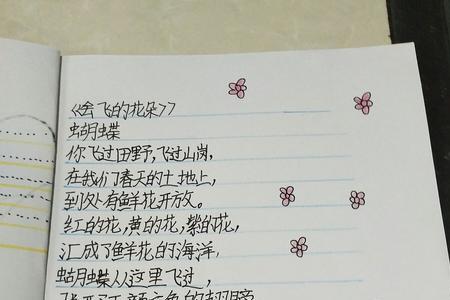 《会飞的花朵》
蝴蝶
你飞过田野,飞过山岗,
在我们春天的土地上,
到处有鲜花开放。
红的花,黄的花,紫的花,
汇成了鲜花的海洋,
蝴蝶从这里飞过,
颜六色的翅膀